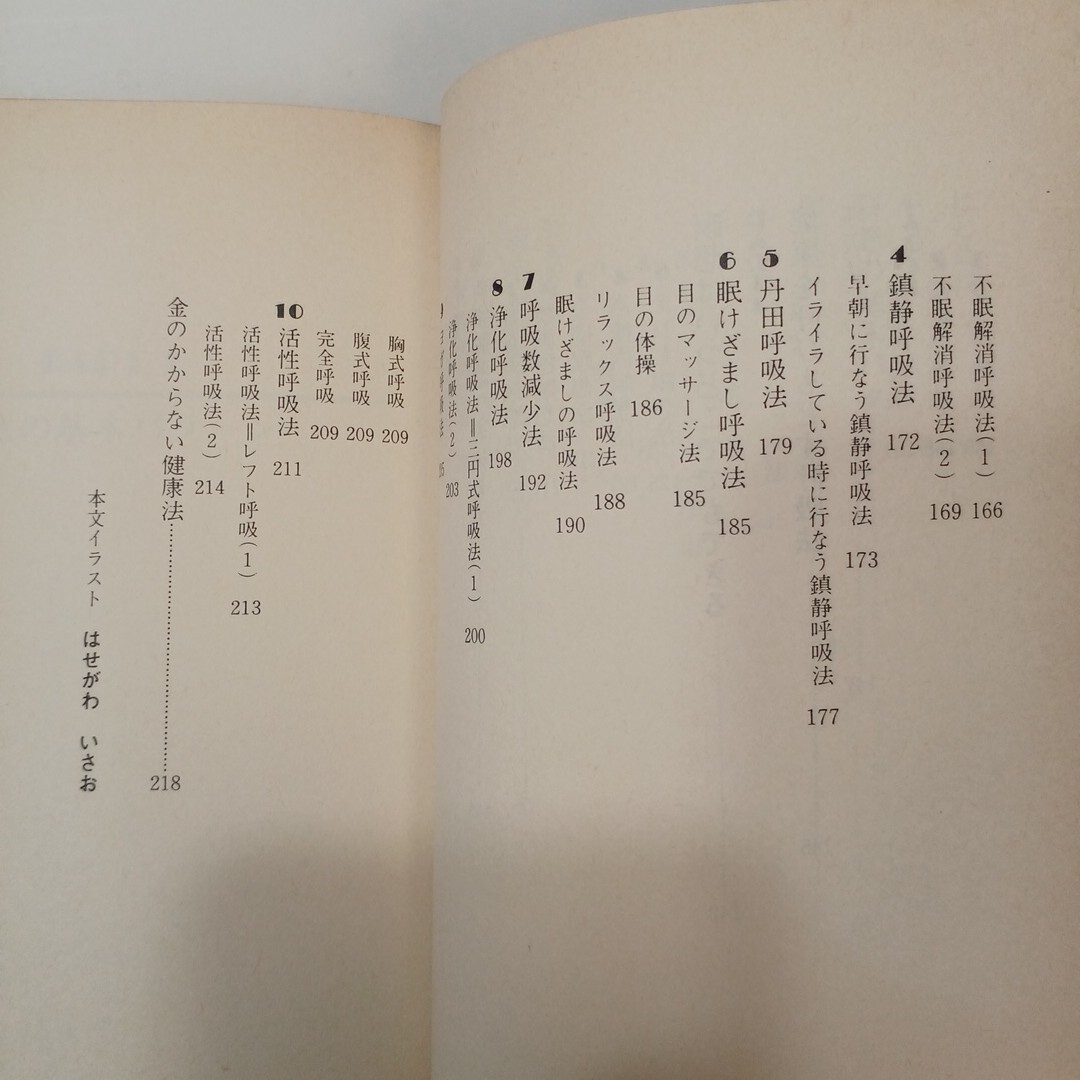 不眠解消呼吸法(1) 166
不眠解消呼吸法(2) 169
4 鎮静呼吸法 172
早朝に行なう鎮静呼吸法 173
イライラしている時に行なう鎮静呼吸法 177
5 丹田呼吸法 179
6 眠けざまし呼吸法 185
目のマッサージ法 185
目の体操 186
リラックス呼吸法 188
眠けざましの呼吸法 190
7 呼吸数減少法 192
8 浄化呼吸法 198
浄化呼吸法＝三円式呼吸法(1) 200
浄化呼吸法(2) 203
9 ヨガ呼吸法
胸式呼吸 209
腹式呼吸 209
完全呼吸 209
10 活性呼吸法 211
活性呼吸法＝レフト呼吸(1) 213
活性呼吸法(2) 214
金のかからない健康法…………218
本文イラスト はせがわ いさお